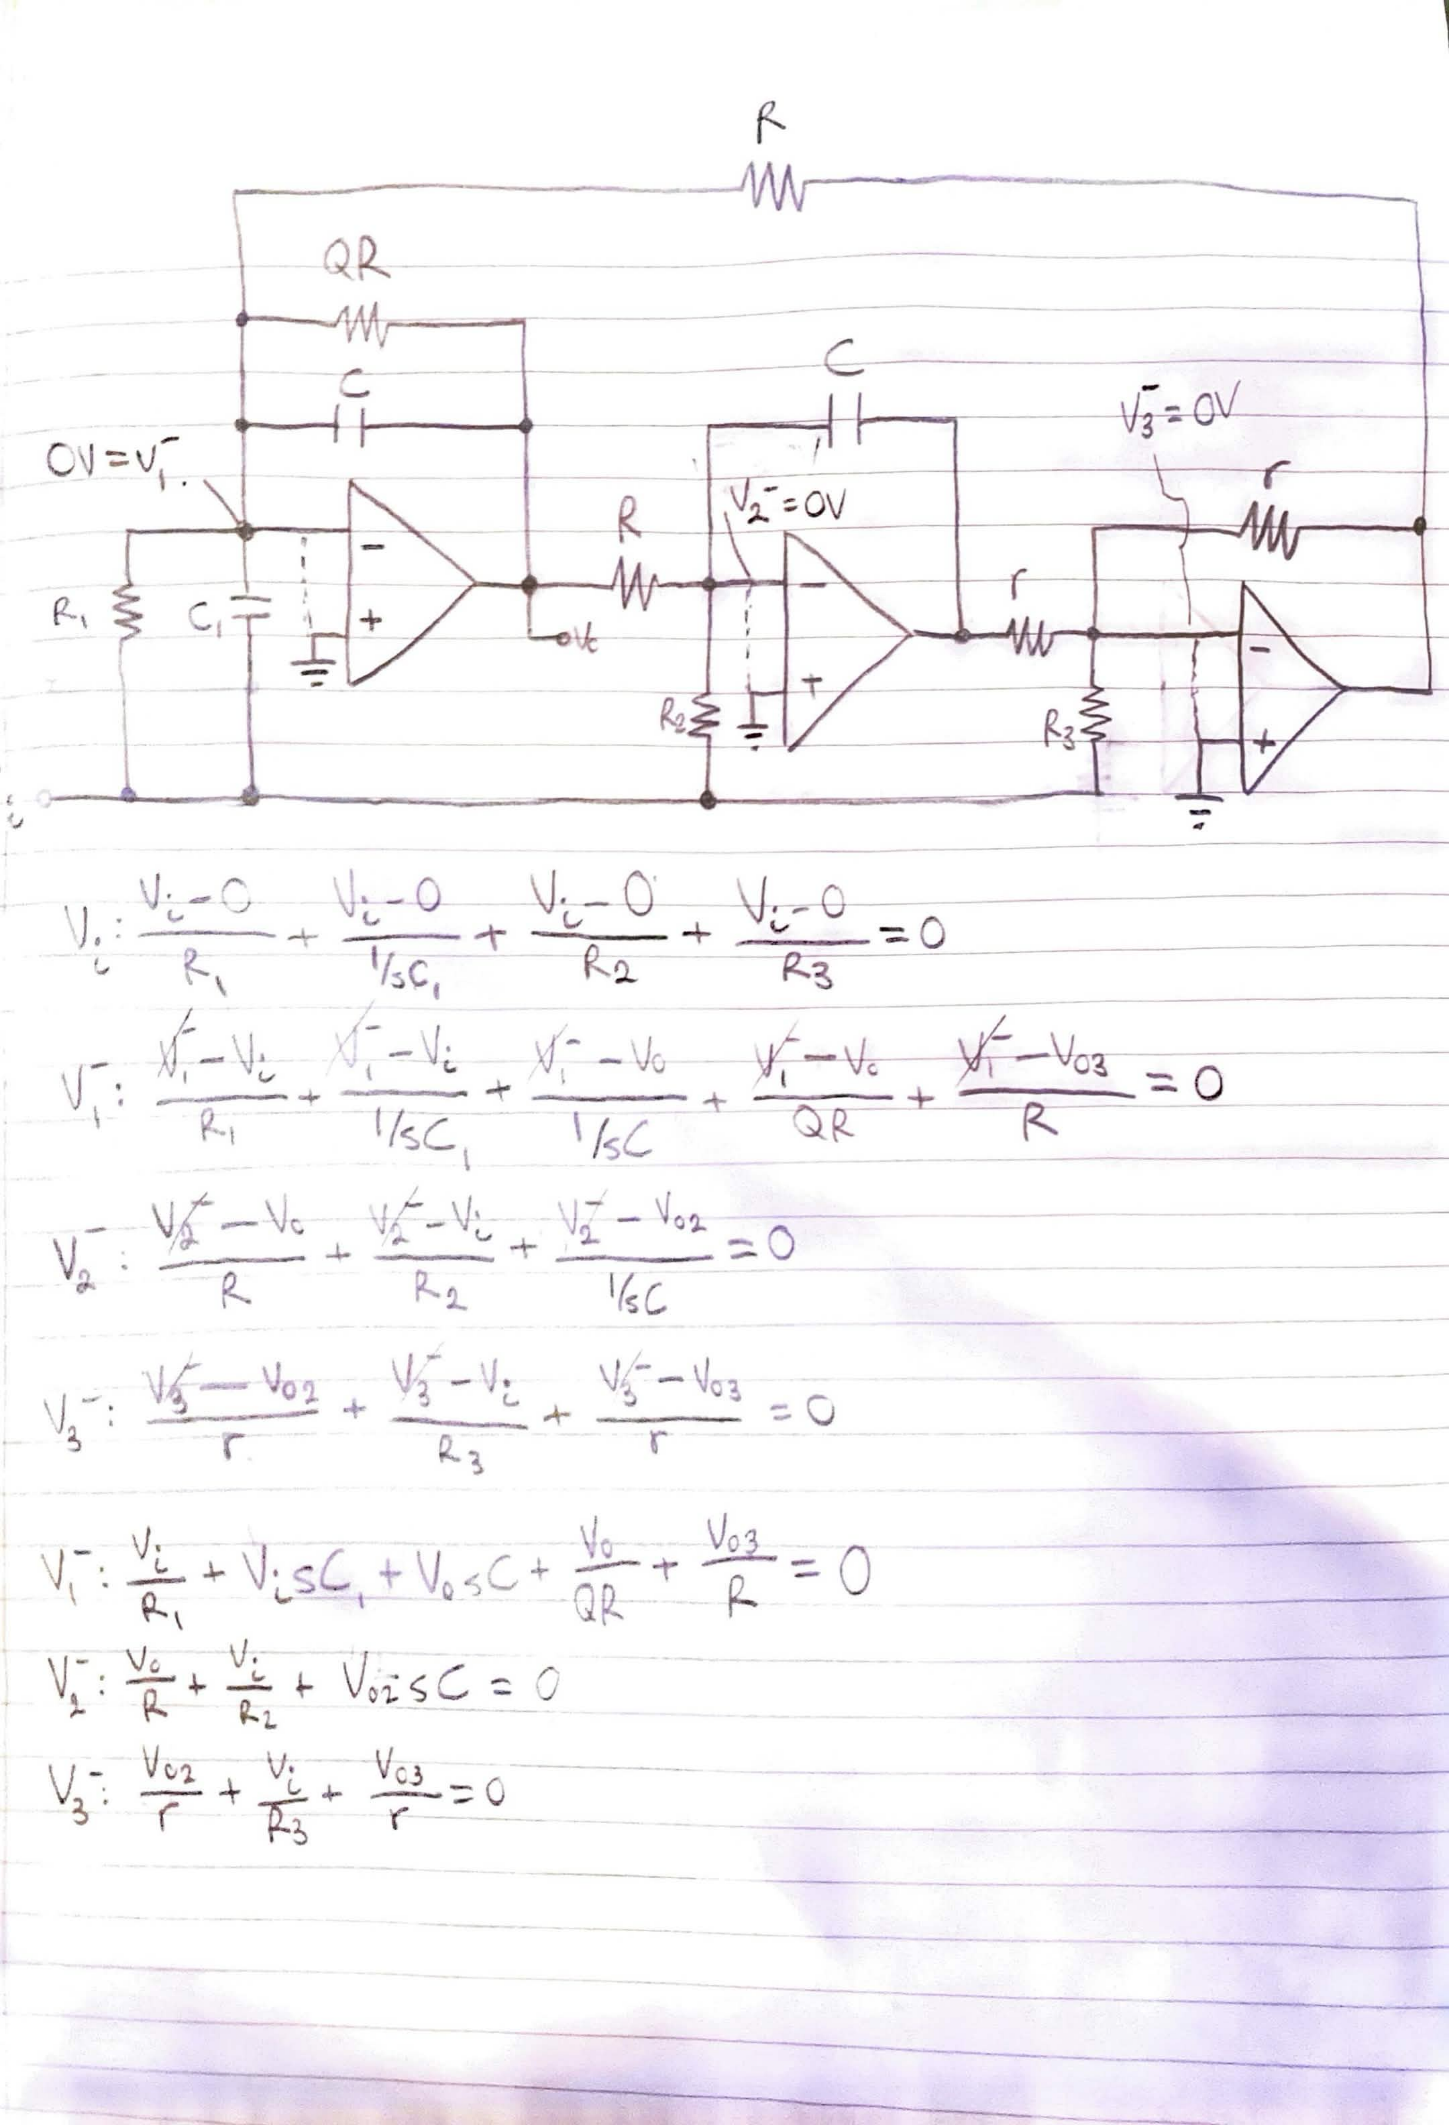 R
QR
C
C
0V = V₁⁻
V₃⁻ = 0V
r
V₂⁻ = 0V
R
r
R₁
C₁
−
+
Vo
−
+
R₂
R₃
−
+
i
Vi: (Vi − 0)/R₁ + (Vi − 0)/(1/sC₁) + (Vi − 0)/R2 + (Vi − 0)/R3 = 0
V₁⁻: (V₁⁻ − Vi)/R₁ + (V₁⁻ − Vi)/(1/sC₁) + (V₁⁻ − Vo)/(1/sC) + (V₁⁻ − Vo)/QR + (V₁⁻ − Vo3)/R = 0
V₂⁻: (V₂⁻ − Vo)/R + (V₂⁻ − Vi)/R₂ + (V₂⁻ − Vo2)/(1/sC) = 0
V₃⁻: (V₃⁻ − Vo2)/r + (V₃⁻ − Vi)/R₃ + (V₃⁻ − Vo3)/r = 0
V₁⁻: Vi/R₁ + VisC₁ + VosC + Vo/QR + Vo3/R = 0
V₂⁻: Vo/R + Vi/R₂ + Vo2sC = 0
V₃⁻: Vo2/r + Vi/R₃ + Vo3/r = 0